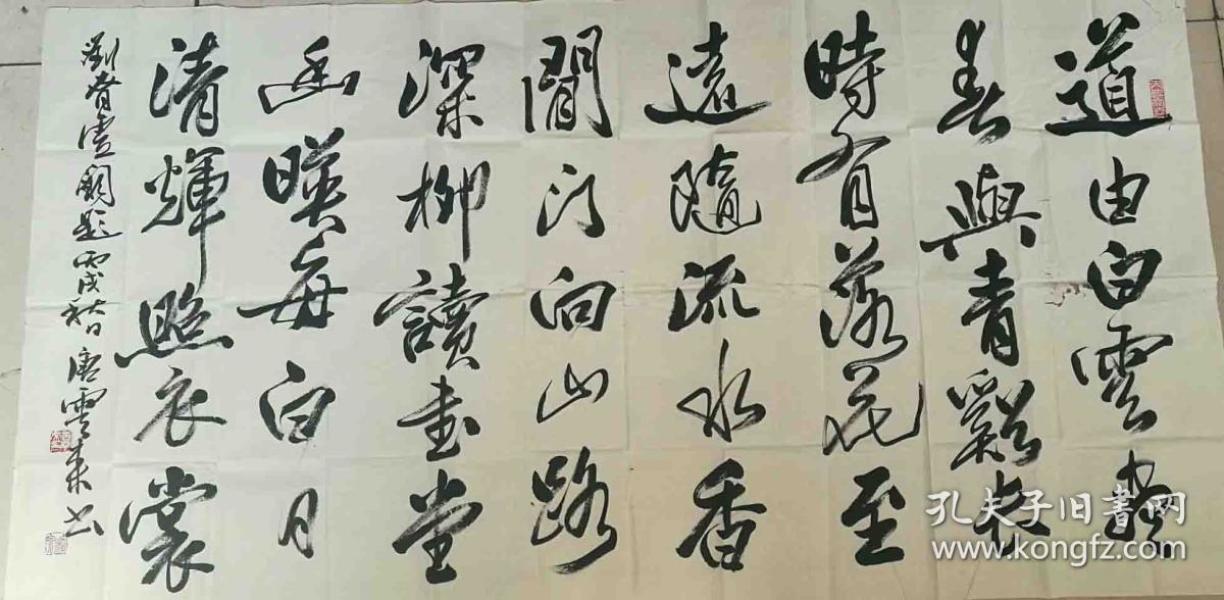 道由白雲盡
春與青谿長
時有落花至
遠隨流水香
閒門向山路
深柳讀書堂
幽暎每白日
清輝照衣裳
劉眘虛闕題 丙戌秋日 唐雲來书
孔夫子旧書网
www.kongfz.com